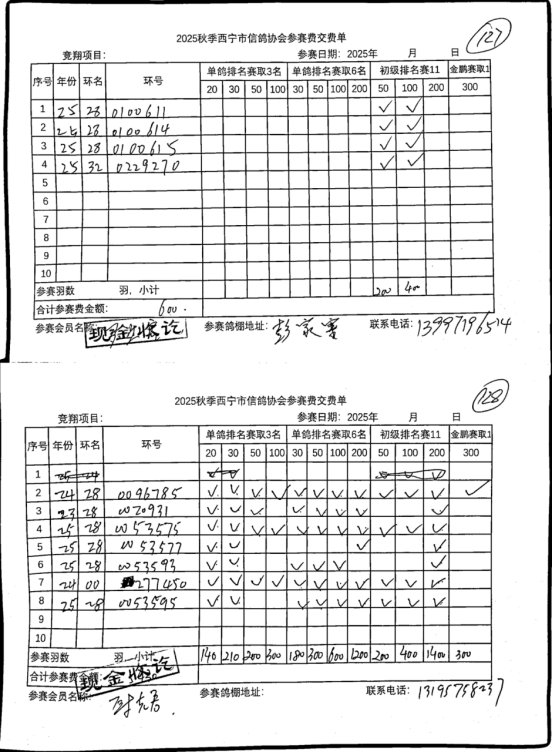 2025秋季西宁市信鸽协会参赛费交费单
127
竞翔项目： 参赛日期：2025年 月 日
序号 年份 环名 环号 单鸽排名赛取3名 单鸽排名赛取6名 初级排名赛11 金鹏赛取1
20 30 50 100 30 50 100 200 50 100 200 300
1 25 28 0100611 ✓ ✓
2 25 28 0100614 ✓ ✓
3 25 28 0100615 ✓ ✓
4 25 32 0229270 ✓ ✓
5
6
7
8
9
10
参赛羽数 羽，小计 200 400
合计参赛费金额： 600.
参赛会员名称： 现金收讫 参赛鸽棚地址： 彭家寨 联系电话：13997196514
2025秋季西宁市信鸽协会参赛费交费单
128
竞翔项目： 参赛日期：2025年 月 日
序号 年份 环名 环号 单鸽排名赛取3名 单鸽排名赛取6名 初级排名赛11 金鹏赛取1
20 30 50 100 30 50 100 200 50 100 200 300
1 25 24
2 24 28 0096785 ✓ ✓ ✓ ✓ ✓ ✓ ✓ ✓ ✓ ✓ ✓ ✓
3 23 28 0020931 ✓ ✓ ✓ ✓ ✓ ✓ ✓ ✓
4 25 28 0053575 ✓ ✓ ✓ ✓ ✓ ✓ ✓ ✓ ✓ ✓ ✓
5 25 28 0053577 ✓ ✓ ✓ ✓
6 25 28 0053593 ✓ ✓ ✓ ✓ ✓ ✓
7 24 00 277450 ✓ ✓ ✓ ✓ ✓ ✓ ✓ ✓ ✓ ✓ ✓
8 25 28 0053595 ✓ ✓ ✓ ✓ ✓ ✓ ✓ ✓ ✓
9
10
参赛羽数 羽，小计 140 210 200 300 180 300 600 1200 200 400 1400 300
合计参赛费金额：
现金收讫
参赛会员名称： 参赛鸽棚地址： 联系电话：13195758237